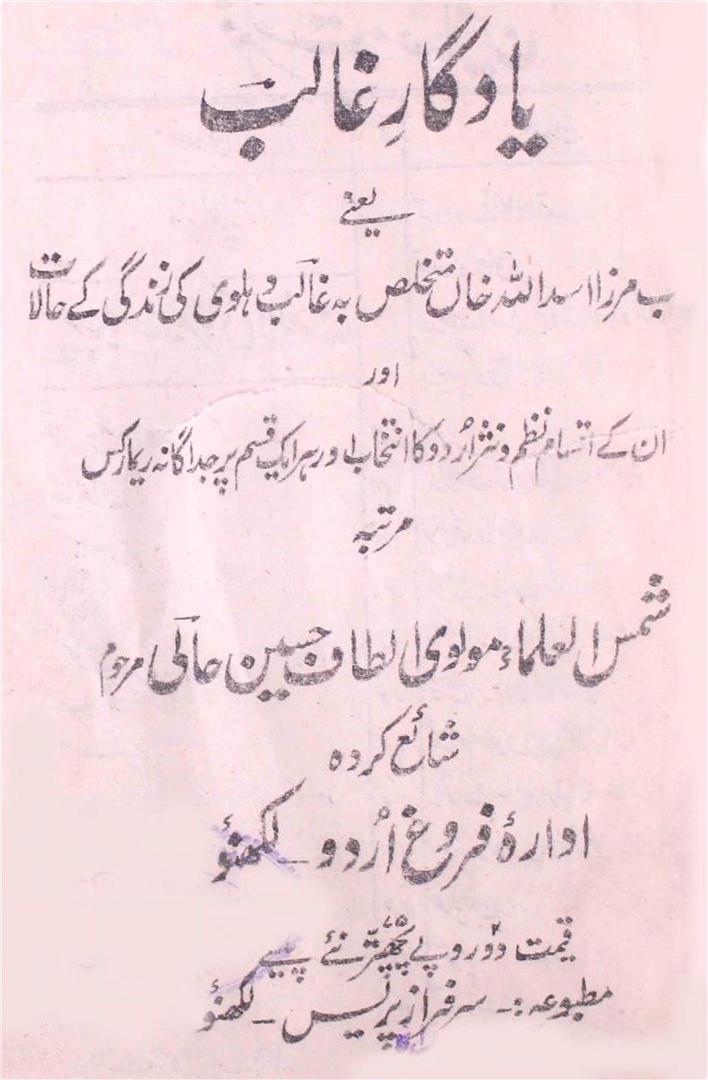 یادگارِ غالبؔ
یعنے
ب مرزا اسد اللہ خاں متخلص بہ غالبؔ دہلوی کی زندگی کے حالات
اور
ان کے اقسام نظم و نثر اُردو کا انتخاب اور ہر ایک قسم پر جداگانہ ریمارکس
مرتبہ
شمس العلماء مولوی الطاف حسین حالیؔ مرحوم
شائع کردہ
ادارۂ فروغ اُردو ـ لکھنؤ
قیمت دو روپے پچھتّر نئے پیسے
مطبوعہ :ـ سرفراز پریس ـ لکھنؤ